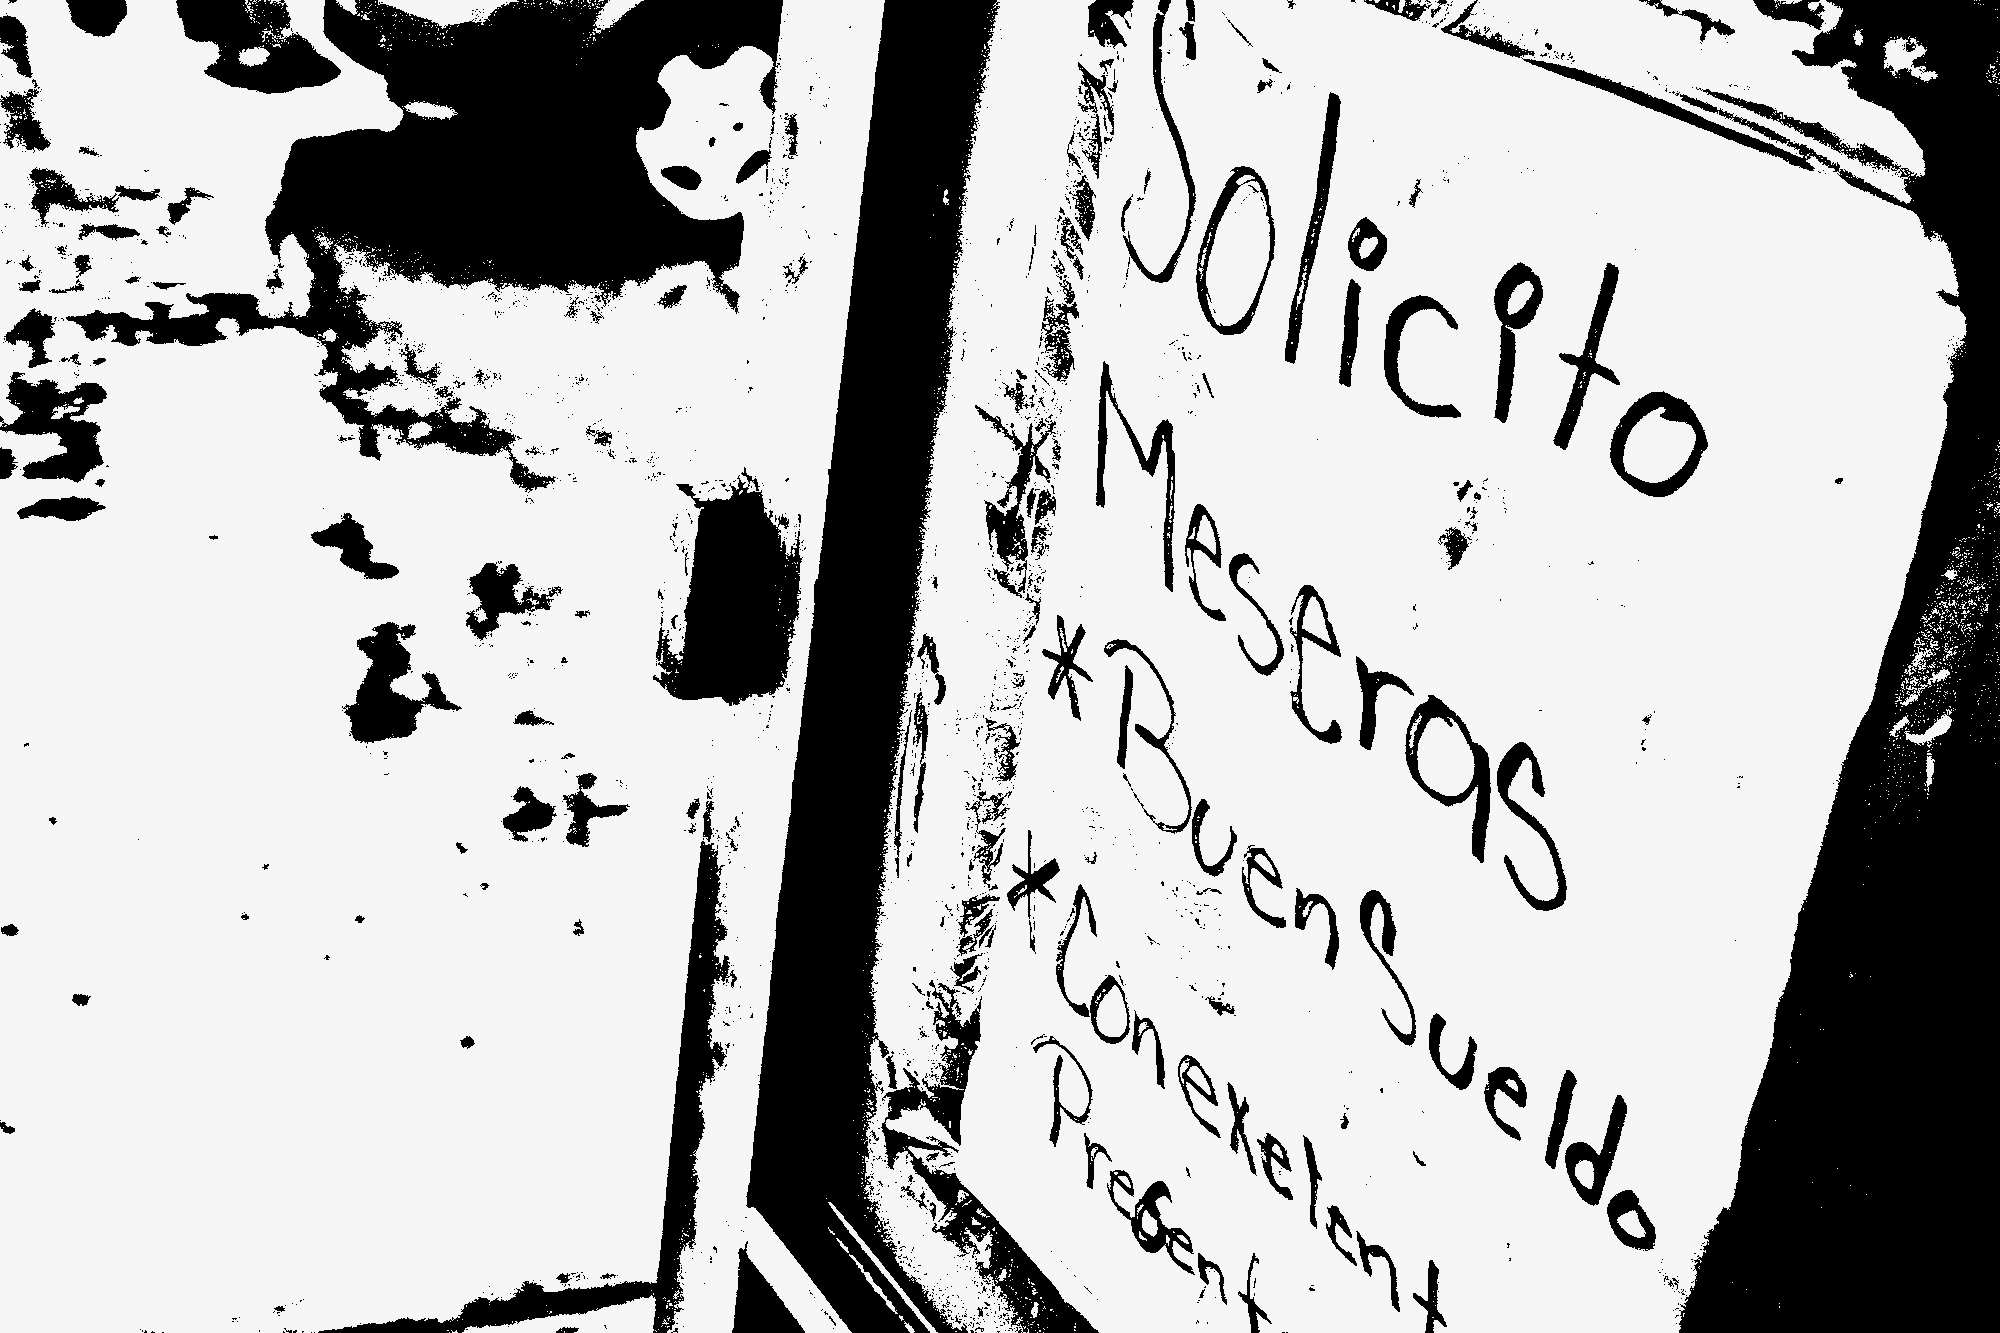 Solicito
Meseras
* Buen Sueldo
* Con exelent
Present